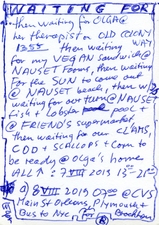 WAITING FOR
then waiting for OLGA@
her therapist on OLD COLONY
then waiting
for my VEGAN sandwich@
NAUSET Farms, then waiting
for the SUN to come out
@ NAUSET beach, then w
waiting for our turn@NAUSET
Fish + Lobster pool +
@ FRIEND'S supermarket,
then waiting for our CLAMS,
COD + SCALLOPS + Corn to
be ready @ Olga's home
ALL ↑: 7 VIII 2019 13-21
8 VIII 2019 07 @ CVS
Main St Orleans, Plymouth +
Bus to NYC, for Brooklyn